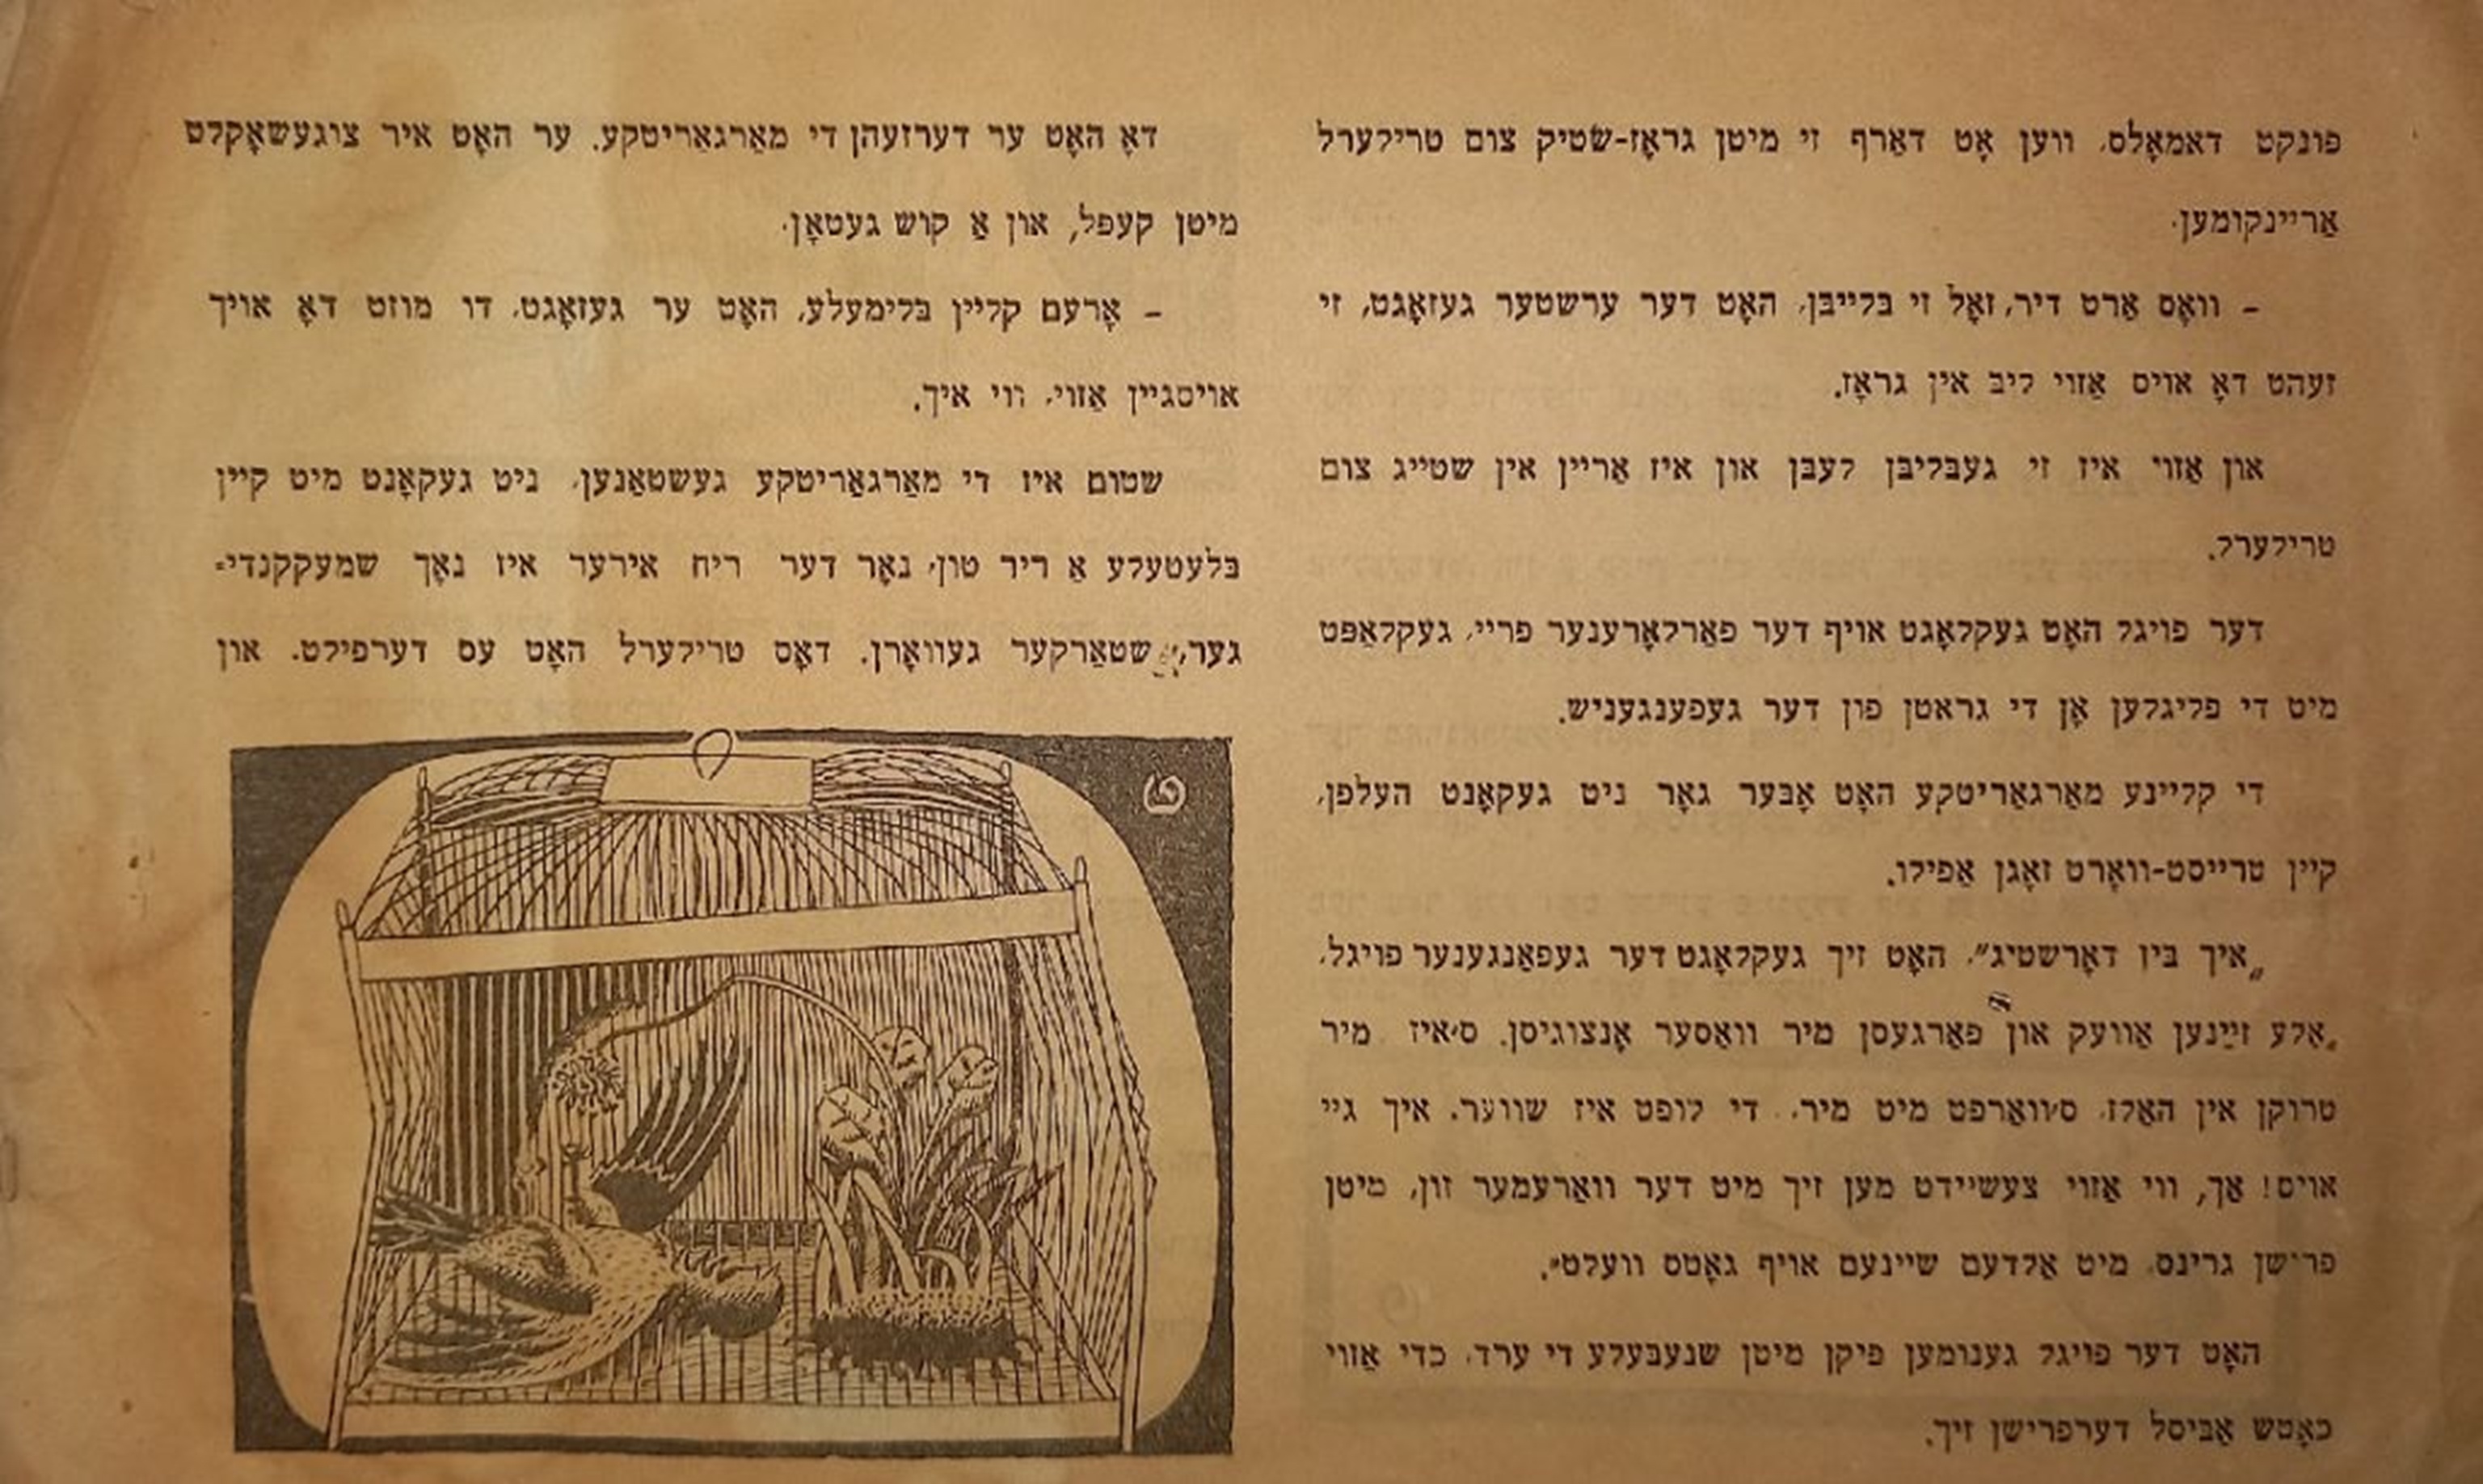 פונקט דאַמאָלס, ווען אָט דאַרף זי מיטן גראָז-שטיק צום טרילערל
אַריינקומען.
– וואָס אַרט דיר, זאָל זי בלייבן, האָט דער ערשטער געזאָגט, זי
זעהט דאָ אויס אַזוי ליב אין גראָז.
און אַזוי איז זי געבליבן לעבן און איז אַריין אין שטייג צום
טרילערל.
דער פויגל האָט געקלאָגט אויף דער פאַרלאָרענער פריי, געקלאַפּט
מיט די פליגלען אָן די גראטן פון דער געפענגעניש.
די קליינע מאַרגאַריטקע האָט אָבער גאָר ניט געקאָנט העלפן,
קיין טרייסט-וואָרט זאָגן אַפילו.
„איך בין דאָרשטיג״, האָט זיך געקלאָגט דער געפאַנגענער פויגל,
„אַלע זיינען אַוועק און פאַרגעסן מיר וואַסער אָנצוגיסן. ס׳איז מיר
טרוקן אין האַלז, ס׳וואַרפט מיט מיר, די לופט איז שווער. איך גיי
אויס! אַך, ווי אַזוי צעשיידט מען זיך מיט דער וואַרעמער זון, מיטן
פרישן גרינס, מיט אַלדעם שיינעם אויף גאָטס וועלט״.
האָט דער פויגל גענומען פיקן מיטן שנעבעלע די ערד, כדי אַזוי
כאָטש אַביסל דערפרישן זיך.
דאָ האָט ער דערזעהן די מאַרגאַריטקע. ער האָט איר צוגעשאָקלט
מיטן קעפל, און אַ קוש געטאָן.
– אָרעם קליין בלימעלע, האָט ער געזאָגט, דו מוזט דאָ אויך
אויסגיין אַזוי, ווי איך.
שטום איז די מאַרגאַריטקע געשטאַנען, ניט געקאָנט מיט קיין
בלעטעלע אַ ריר טון, נאָר דער ריח אירער איז נאָך שמעקקנדי-
גער, שטאַרקער געוואָרן. דאָס טרילערל האָט עס דערפילט. און